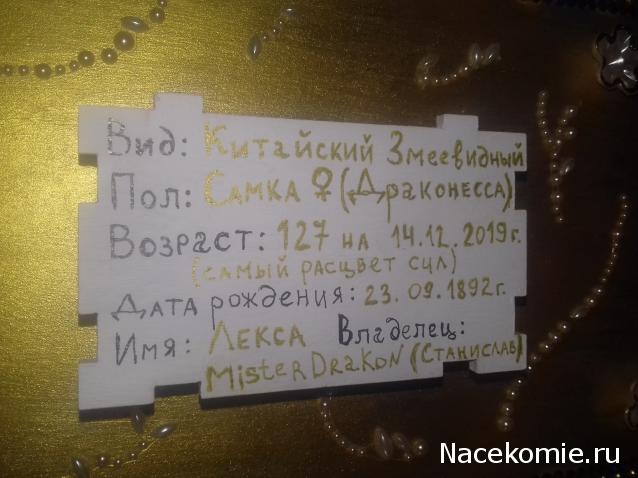 Вид: Китайский Змеевидный
Пол: Самка ♀ (Драконесса)
Возраст: 127 на 14.12.2019г.
(самый расцвет сил)
Дата рождения: 23.09.1892г.
Имя: Лекса Владелец:
MisterDrakon (Станислав)
Nacekomie.ru